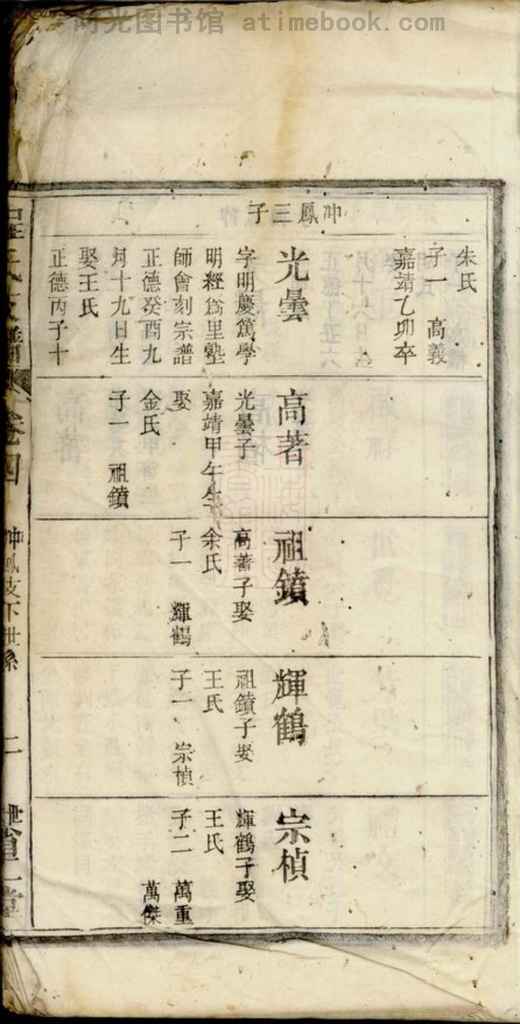 时光图书馆 atimebook.com
冲鳳三子
朱氏
子一 高義
嘉靖乙卯卒
光曇
字明慶篤學
明經爲里塾
師會刻宗譜
正德癸酉九
月十九日生
娶王氏
正德丙子十
高著
光曇子
嘉靖甲午生
娶
金氏
子一 祖鐼
祖鐼
高著子娶
余氏
子一 輝鶴
輝鶴
祖鐼子娶
王氏
子一 宗楨
宗楨
輝鶴子娶
王氏
子二 萬重
萬傑
卷四
冲鳳支下世系
二